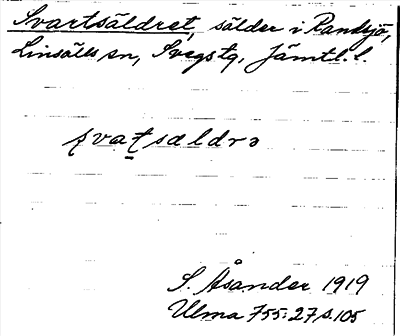 Svartsäldret, sälder i Randsjö,
Linsälls sn, Svegs tg, Jämtl. l.
svatsældrə
S. Åsander 1919
Ulma 755:27 s. 105